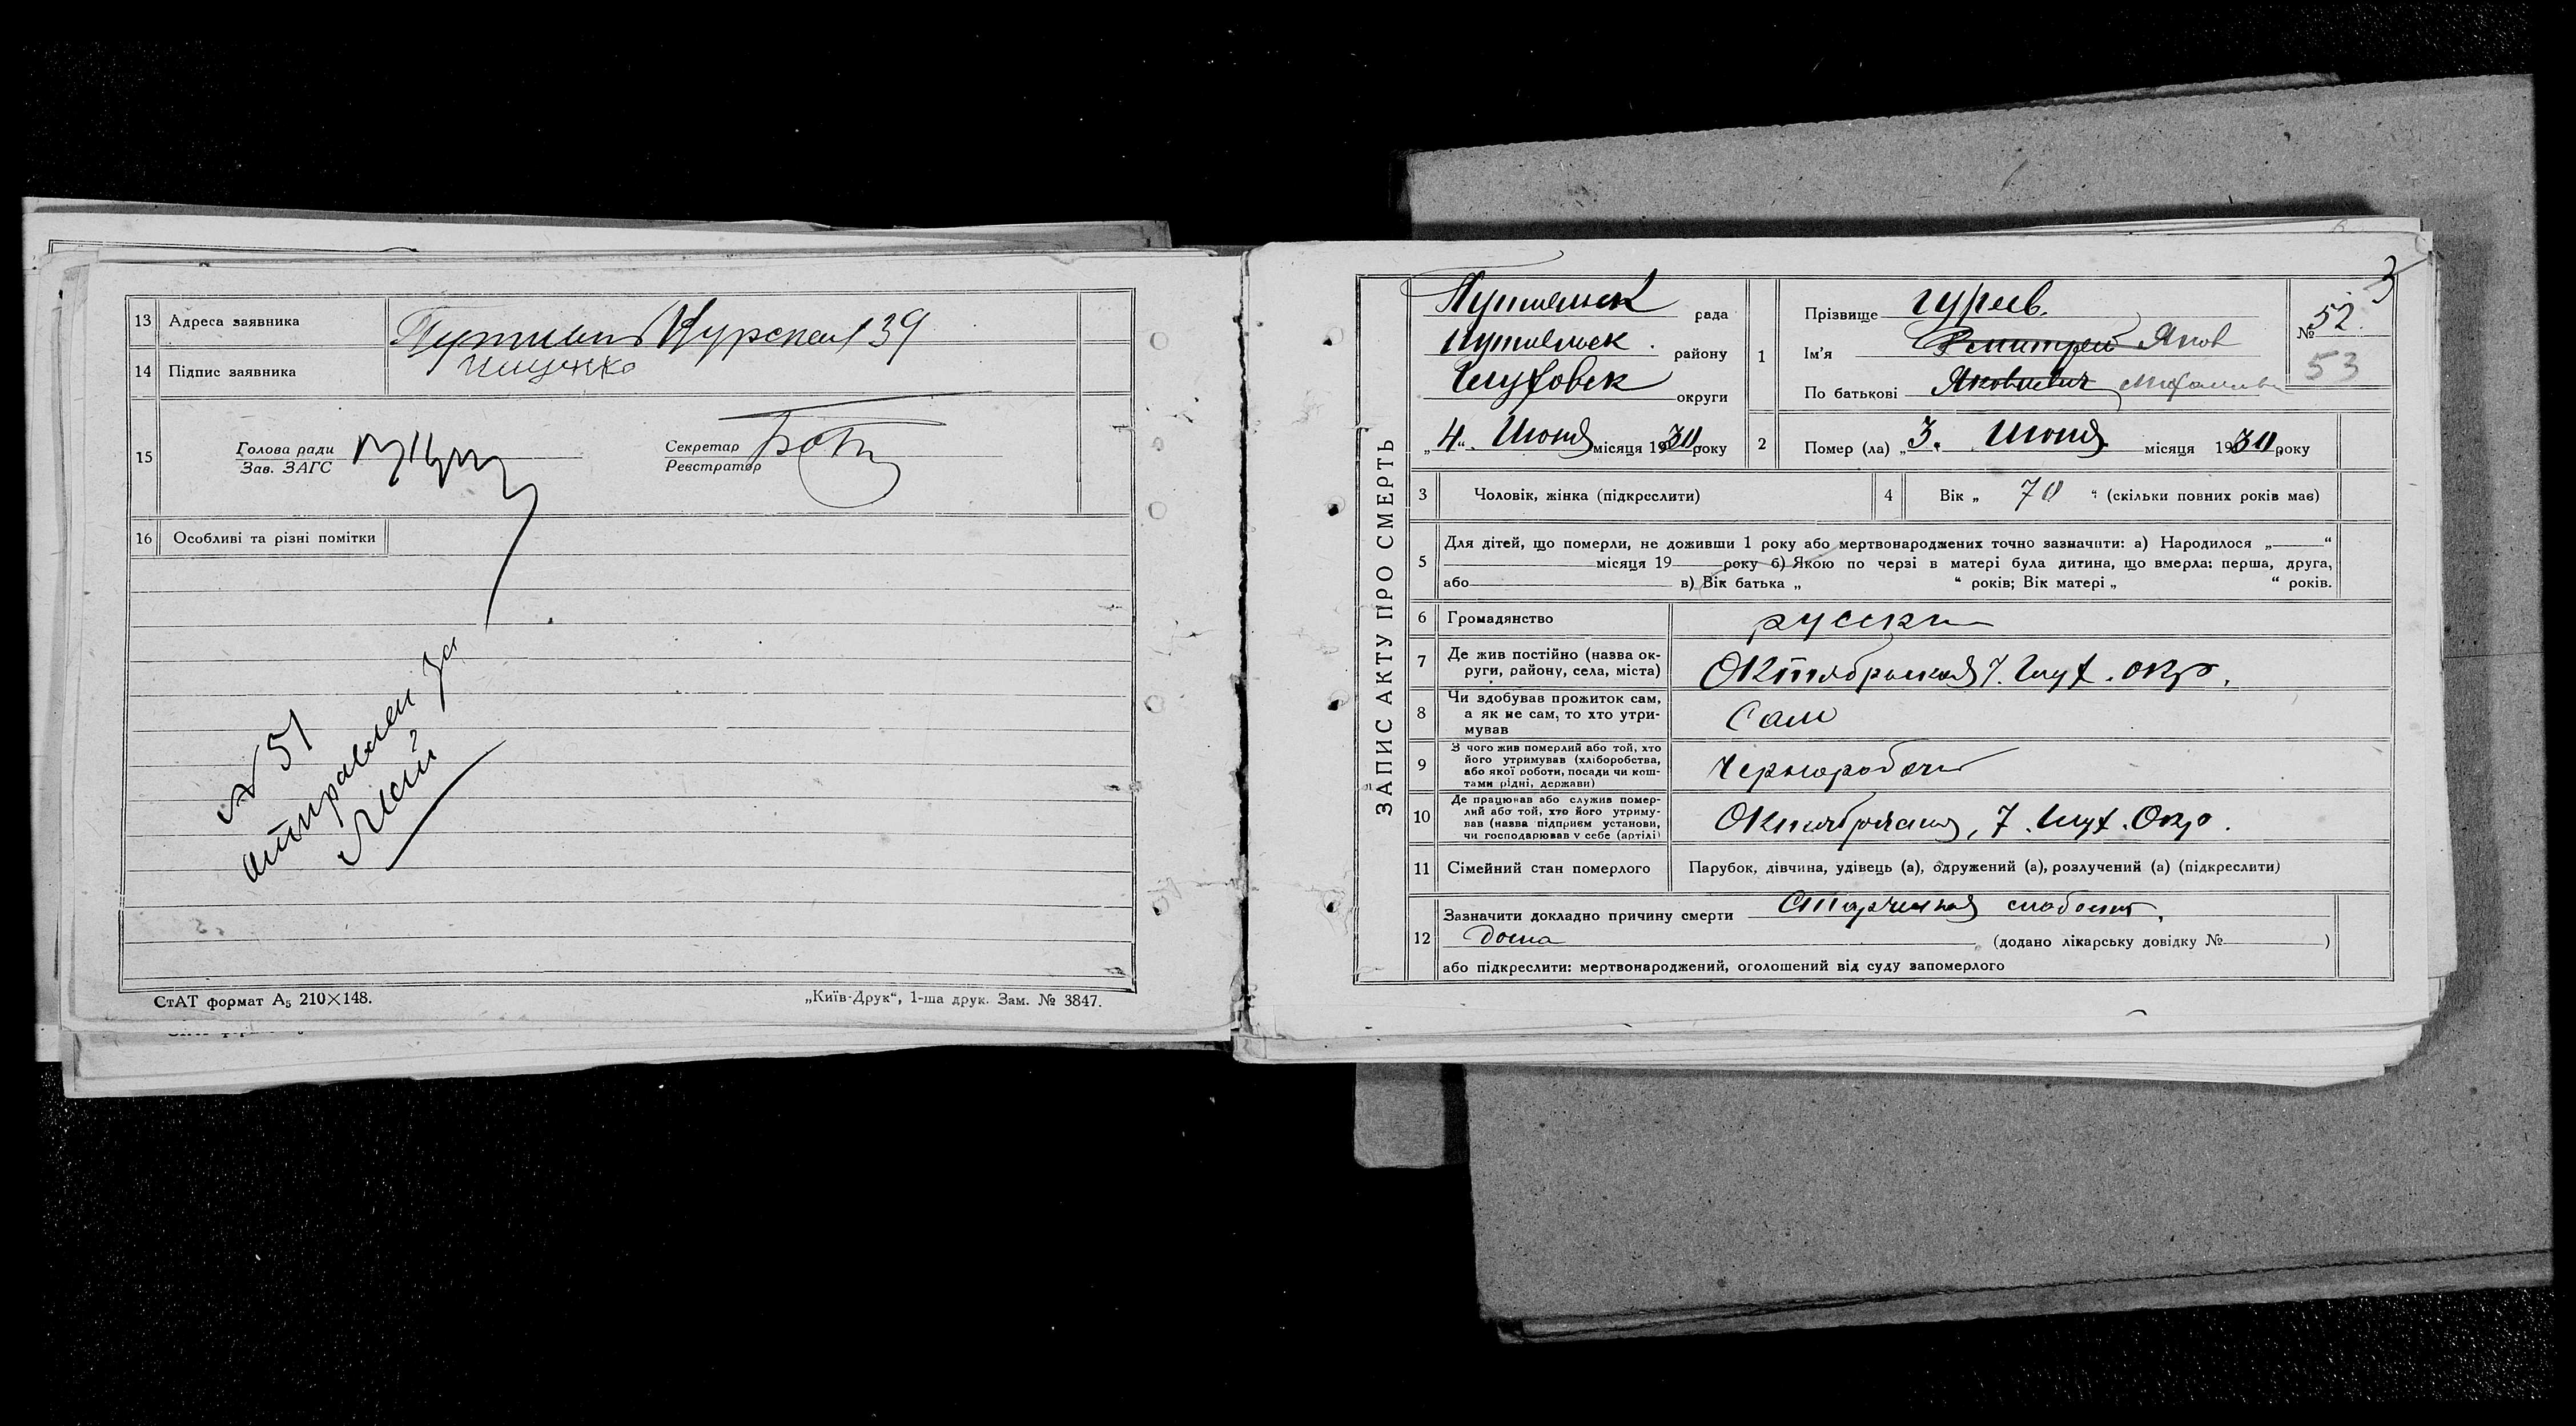 13 Адреса заявника Путивль Курская 139
14 Підпис заявника
15 Голова ради
Зав. ЗАГС
Секретар
Реєстратор
16 Особливі та різні помітки
№ 51
отправлен за
Май
СтАТ формат А₅ 210×148.
„Київ-Друк“, 1-ша друк. Зам. № 3847.
3
ЗАПИС АКТУ ПРО СМЕРТЬ
Путивльск рада
Путивльск. району
Глуховск округи
„4“ Июня місяця 1930 року
1 Прізвище Гуреев.
Ім’я Дмитрей Яков
По батькові Яковлевич
№ 52.
53
2 Помер (ла) „3. Июня місяця 1930 року
3 Чоловік, жінка (підкреслити)
4 Вік „ 70 “ (скільки повних років має)
5 Для дітей, що померли, не доживши 1 року або мертвонароджених точно зазначити: а) Народилося „ “
місяця 19 року б) Якою по черзі в матері була дитина, що вмерла: перша, друга,
або в) Вік батька „ “ років; Вік матері „ “ років.
6 Громадянство русский
7 Де жив постійно (назва ок-
руги, району, села, міста) Октябрьская 7. Глух. окр.
8 Чи здобував прожиток сам,
а як не сам, то хто утри-
мував Сам
9 З чого жив померлий або той, хто
його утримував (хліборобства,
або якої роботи, посади чи кош-
тами рідні, держави) Чернорабочий
10 Де працював або служив помер-
лий або той, хто його утриму-
вав (назва підприєм установи,
чи господарював у себе (артілі) Октябрьская, 7. Глух. Окр.
11 Сімейний стан померлого Парубок, дівчина, удівець (а), одружений (а), розлучений (а) (підкреслити)
12 Зазначити докладно причину смерти Старческая слабость,
дома (додано лікарську довідку № )
або підкреслити: мертвонароджений, оголошений від суду запомерлого